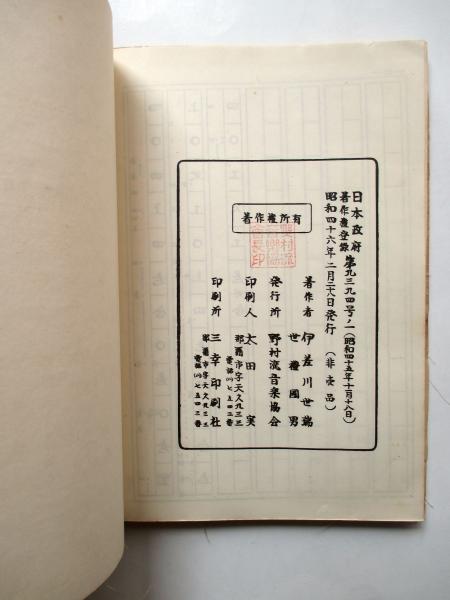 日本政府
著作權登録 第九三九四号ノ一（昭和四十五年十一月十八日）
昭和四十六年二月二十八日発行 （非売品）
著作者 伊差川世瑞
世禮國男
発行所 野村流音楽協会
印刷人 太田 実
那覇市字天久九三三
電話(八)七五四二番
印刷所 三幸印刷社
那覇市字天久九三三
電話(八)七五四二番
著作權所有